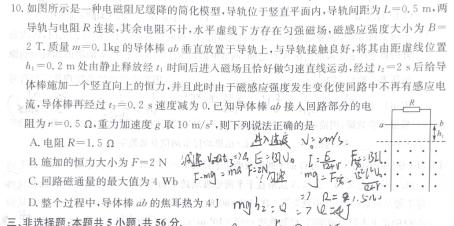 10. 如图所示是一种电磁阻尼缓降的简化模型,导轨位于竖直平面内,导轨间距为 L=0.5 m,两
导轨与电阻 R 连接,其余电阻不计,水平虚线下方存在匀强磁场,磁感应强度大小为 B=
2 T.质量 m=0.1kg 的导体棒 ab 垂直放置于导轨上,与导轨接触良好,将其由距虚线位置
h₁=0.2 m 处由静止释放经 t₁ 时间后进入磁场且恰好做匀速直线运动,经过 t₂=2 s 后给导
体棒施加一个竖直向上的恒力,并且此时由于磁感应强度发生变化使回路中不再有感应电
流,导体棒再经过 t₃=0.2 s 速度减为 0.已知导体棒 ab 接入回路部分的电
阻为 r=0.5 Ω,重力加速度 g 取 10 m/s²,则下列说法正确的是
R
a
b
h₁
A. 电阻 R=1.5 Ω
B. 施加的恒力大小为 F=2 N
C. 回路磁通量的最大值为 4 Wb
D. 整个过程中,导体棒 ab 的焦耳热为 4 J
V=2m/s.
F-mg=ma F=2N
mgh₂=Q
三、非选择题:本题共 5 小题,共 56 分.